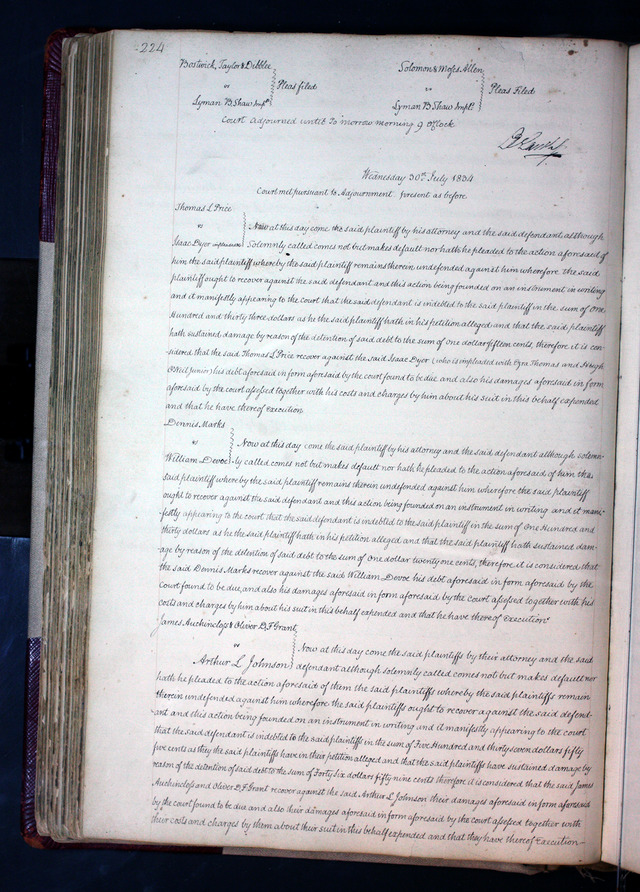 224
Bostwick, Taylor & Deblee
vs } Pleas filed
Lyman B. Shaw Impd.
Solomon & Moses Allen
vs } Pleas Filed
Lyman B Shaw Impd.
Court adjourned until To morrow morning 9 O'Clock
Wednesday 30th July 1834
Court met pursuant to Adjournment present as before
Thomas L Price
vs } Now at this day come the said plaintiff by his attorney and the said defendant although
Isaac Dyer impleaded } Solemnly called comes not but makes default nor hath he pleaded to the action aforesaid of
him the said plaintiff where by the said plaintiff remains therein undefended against him wherefore the said
plaintiff ought to recover against the said defendant and this action being founded on an instrument in writing
and it manifestly appearing to the court that the said defendant is indebted to the said plaintiff in the sum of One
Hundred and thirty three dollars as he the said plaintiff hath in his petition alleged and that the said plaintiff
hath sustained damage by reason of the detention of said debt to the sum of one dollar fifteen cents, therefore it is con-
sidered that the said Thomas L Price recover against the said Isaac Dyer (who is impleaded with Ezra Thomas and Hugh
O Neil junior) his debt aforesaid in form aforesaid by the court found to be due and also his damages aforesaid in form
aforesaid by the court assessed together with his costs and charges by him about his suit in this behalf expended
and that he have there of execution
Dennis Marks
vs } Now at this day come the said plaintiff by his attorney and the said defendant although solemn-
William Devoe } ly called comes not but makes default nor hath he pleaded to the action aforesaid of him the
said plaintiff where by the said plaintiff remains therein undefended against him wherefore the said plaintiff
ought to recover against the said defendant and this action being founded on an instrument in writing and it mani-
festly appearing to the court that the said defendant is indebted to the said plaintiff in the sum of One Hundred and
thirty dollars as he the said plaintiff hath in his petition alleged and that the said plaintiff hath sustained dam-
age by reason of the detention of said debt to the sum of one dollar twenty one cents, therefore it is considered that
the said Dennis Marks recover against the said William Devoe his debt aforesaid in form aforesaid by the
Court found to be due, and also his damages aforesaid in form aforesaid by the court assessed together with his
costs and charges by him about his suit in this behalf expended and that he have there of execution
James Auchincloss & Oliver D, F Grant
vs } Now at this day come the said plaintiffs by their attorney and the said
Arthur L Johnson } defendant although solemnly called comes not but makes default nor
hath he pleaded to the action aforesaid of them the said plaintiffs where by the said plaintiffs remain
therein undefended against him wherefore the said plaintiffs ought to recover against the said defend-
ant and this action being founded on an instrument in writing and it manifestly appearing to the court
that the said defendant is indebted to the said plaintiffs in the sum of Five Hundred and thirty seven dollars fifty
five cents as they the said plaintiffs have in their petition alleged and that the said plaintiffs have sustained damage by
reason of the detention of said debt to the sum of Forty six dollars fifty nine cents therefore it is considered that the said James
Auchincloss and Oliver D, F Grant recover against the said Arthur L Johnson their damages aforesaid in form aforesaid
by the court found to be due and also their damages aforesaid in form aforesaid by the court assessed together with
their costs and charges by them about their suit in this behalf expended and that they have there of Execution